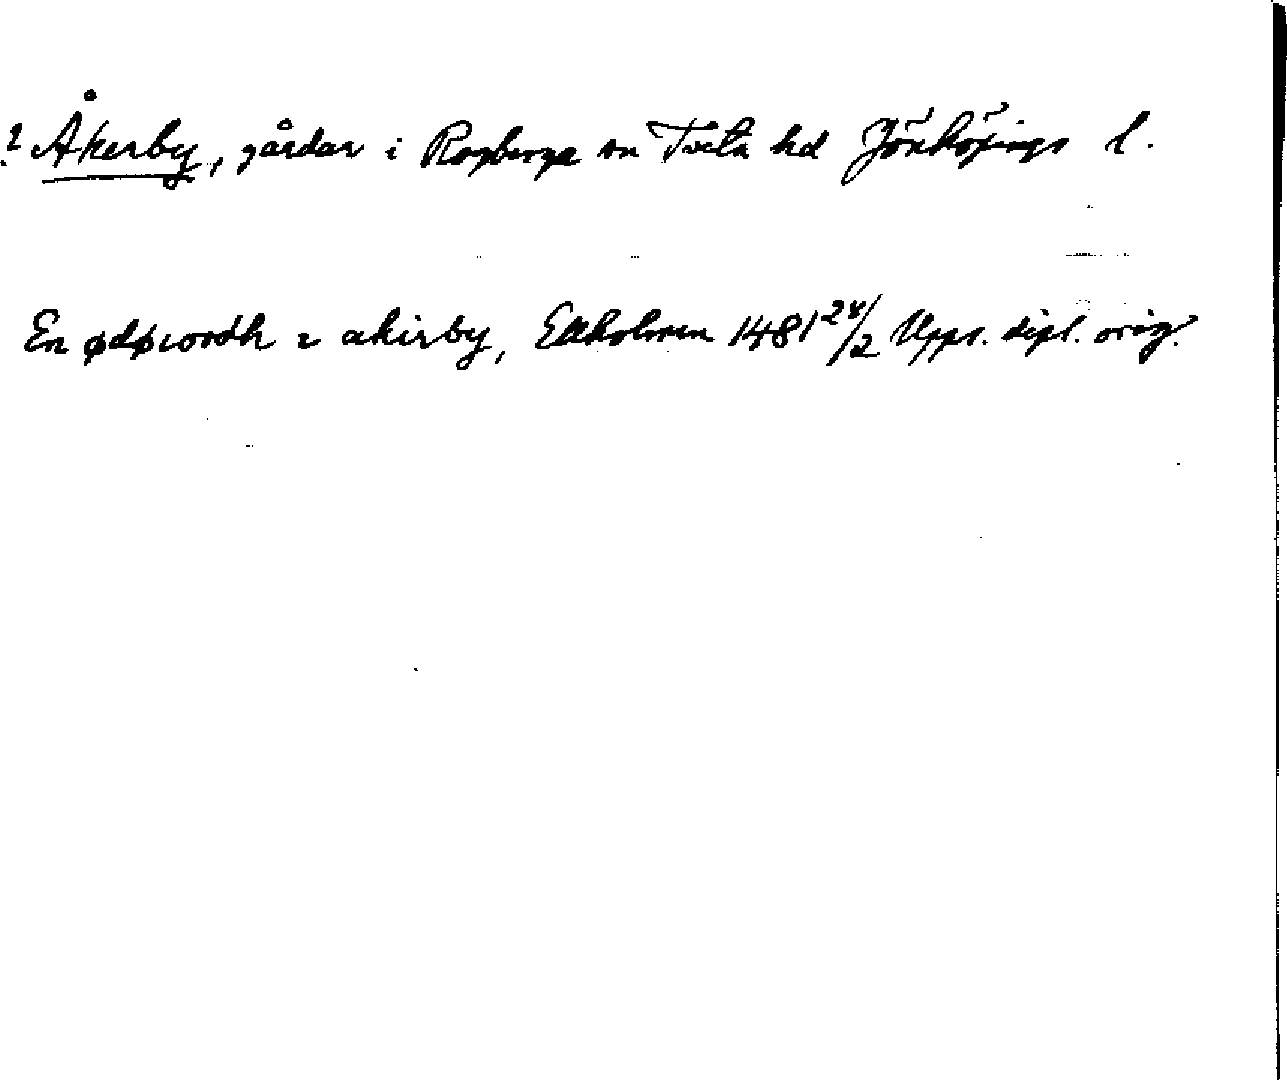 ? Åkerby, gårdar i Rogberga sn Tveta hd Jönköpings l.
En ødhiordh i akirby, Ekholmen 1481 24/2 Upps. dipl. orig.